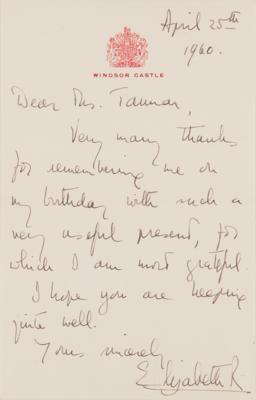 April 25th
1960.
WINDSOR CASTLE
Dear Mrs. Tannar,
Very many thanks
for remembering me on
my birthday with such a
very useful present, for
which I am most grateful.
I hope you are keeping
quite well.
Yours sincerely
Elizabeth R